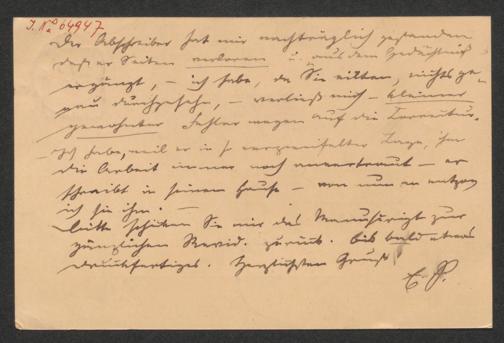 I. No 64947
Der Abschreiber hat mir nachträglich gestanden
daß er Seiten verloren u. aus dem Gedächtniß
ergänzt, – ich habe, da Sie eilten, nichts ge-
nau durchgesehn, – verließ mich – kleiner
gewohnter Fehler wegen auf die Correctur.
– Ich habe, weil er in so verzweifelter Lage, ihm
die Arbeit immer noch anvertraut – er
schreibt in seinem Hause – von nun an entzog
ich sie ihm. –
Bitte schicken Sie mir das Manuskript zur
gänzlichen Revid. zurück. Bis bald etwas
druckfertiges. Herzlichsten Gruß!
E. P.